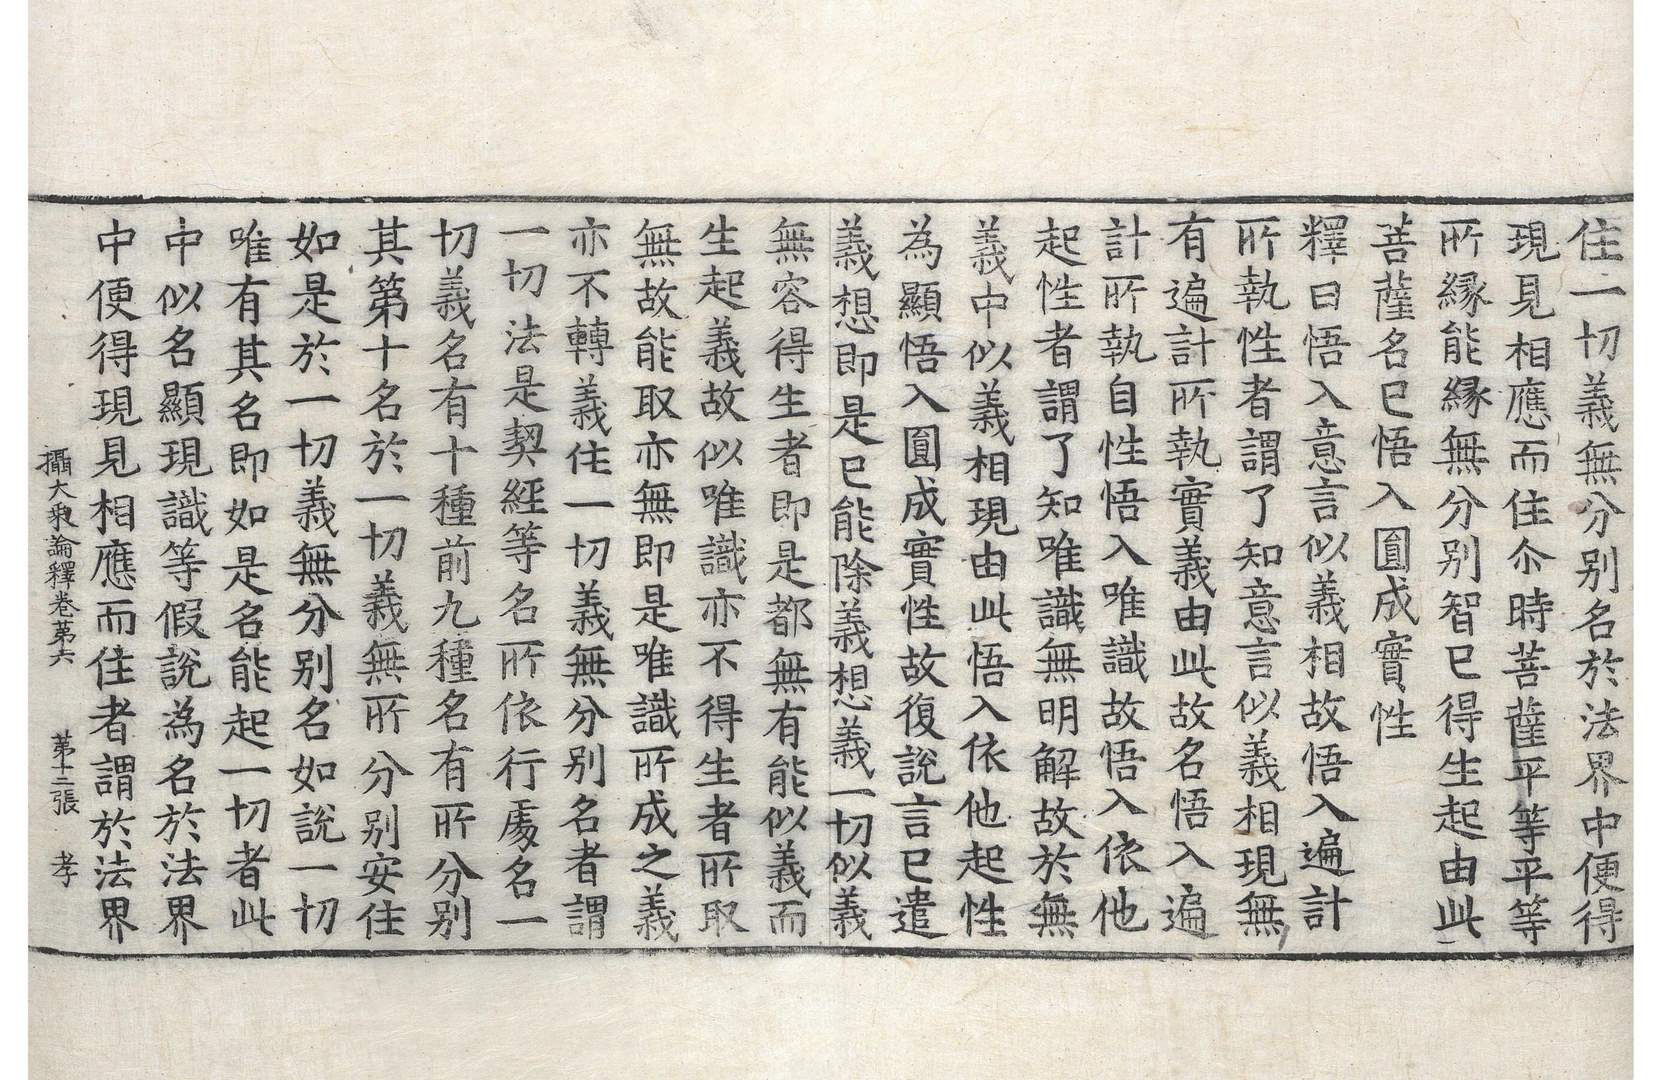 住一切義無分别名於法界中便得
現見相應而住尒時菩薩平等平等
所縁能縁無分别智已得生起由此
菩薩名已悟入圓成實性
釋曰悟入意言似義相故悟入遍計
所執性者謂了知意言似義相現無
有遍計所執實義由此故名悟入遍
計所執自性悟入唯識故悟入依他
起性者謂了知唯識無明解故於無
義中似義相現由此悟入依他起性
為顯悟入圓成實性故復說言已遣
義想即是已能除義想義一切似義
無容得生者即是都無有能似義而
生起義故似唯識亦不得生者所取
無故能取亦無即是唯識所成之義
亦不轉義住一切義無分别名者謂
一切法是契經等名所依行處名一
切義名有十種前九種名有所分别
其第十名於一切義無所分别安住
如是於一切義無分别名如說一切
唯有其名即如是名能起一切者此
中似名顯現識等假說為名於法界
中便得現見相應而住者謂於法界
攝大乘論釋卷第六　第十二張　孝